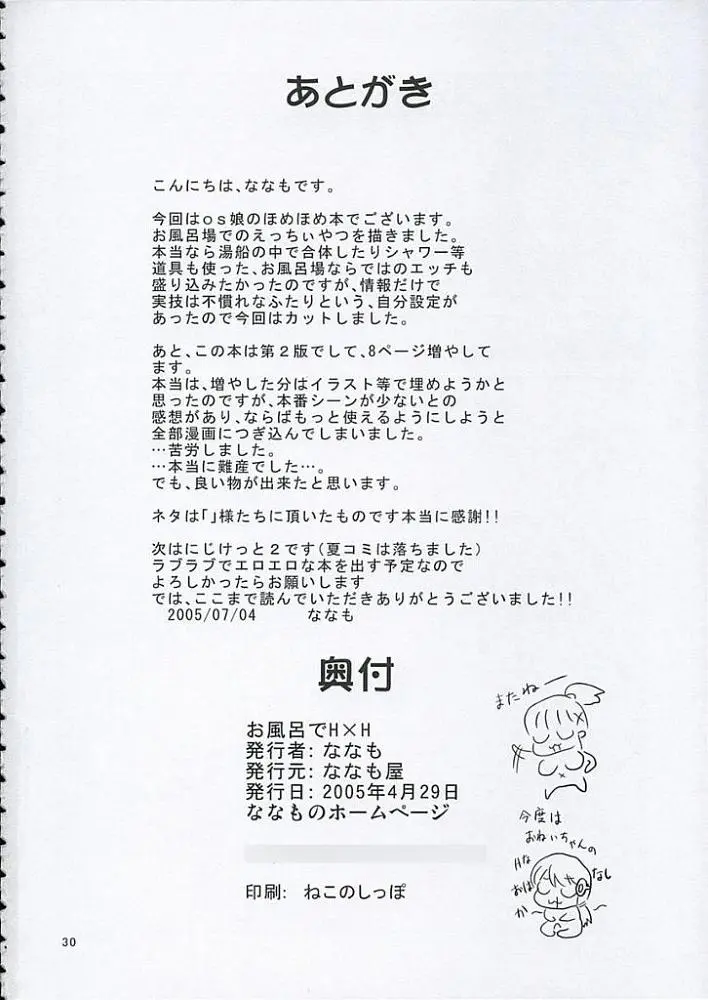 あとがき
こんにちは、ななもです。
今回はｏｓ娘のほめほめ本でございます。
お風呂場でのえっちぃやつを描きました。
本当なら湯船の中で合体したりシャワー等
道具も使った、お風呂場ならではのエッチも
盛り込みたかったのですが、情報だけで
実技は不慣れなふたりという、自分設定が
あったので今回はカットしました。
あと、この本は第２版でして、8ページ増やして
ます。
本当は、増やした分はイラスト等で埋めようかと
思ったのですが、本番シーンが少ないとの
感想があり、ならばもっと使えるようにしようと
全部漫画につぎ込んでしまいました。
…苦労しました。
…本当に難産でした…。
でも、良い物が出来たと思います。
ネタは「」様たちに頂いたものです本当に感謝!!
次はにじけっと２です(夏コミは落ちました)
ラブラブでエロエロな本を出す予定なので
よろしかったらお願いします
では、ここまで読んでいただきありがとうございました!!
2005/07/04 ななも
奥付
お風呂でH×H
発行者: ななも
発行元: ななも屋
発行日: 2005年4月29日
ななものホームページ
印刷: ねこのしっぽ
またねー
今度は
おねいちゃんの
Hな
おはなし
か〜
30